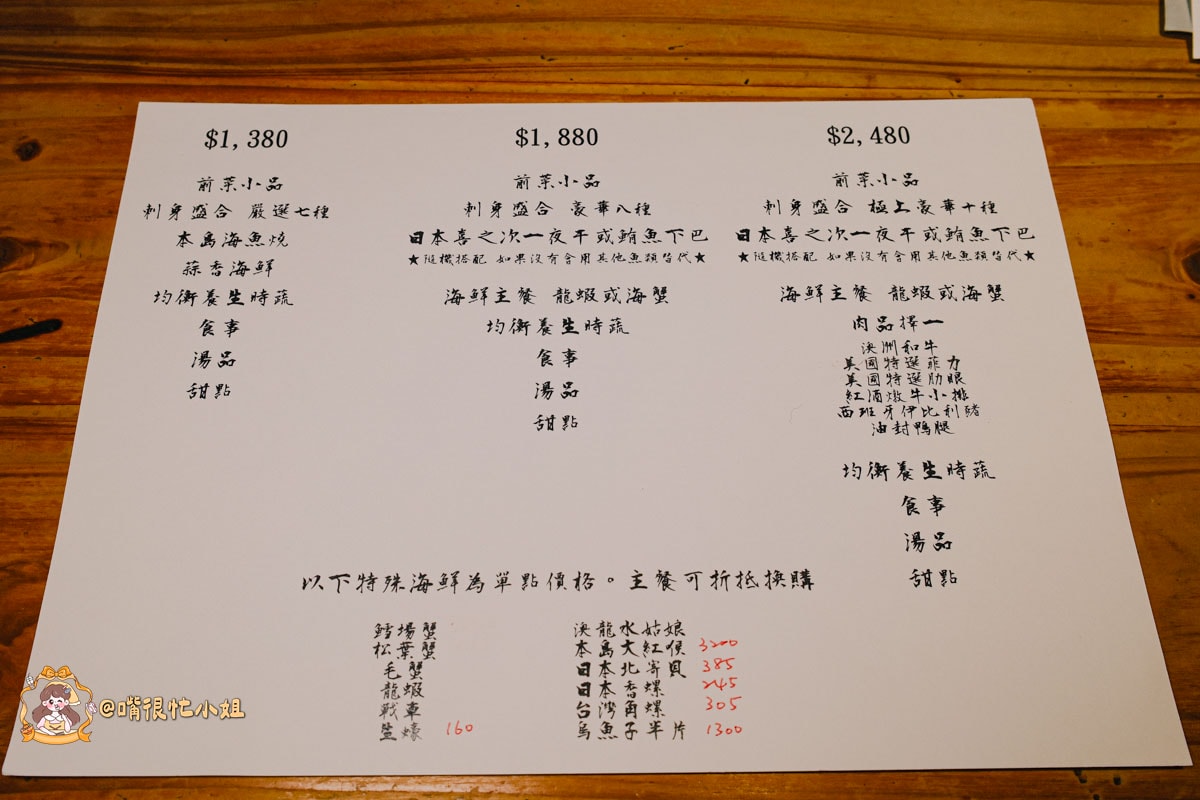 $1,380
前菜小品
刺身盛合 嚴選七種
本島海魚燒
蒜香海鮮
均衡養生時蔬
食事
湯品
甜點
$1,880
前菜小品
刺身盛合 豪華八種
日本喜之次一夜干或鮪魚下巴
★隨機搭配 如果沒有會用其他魚類替代★
海鮮主餐 龍蝦或海蟹
均衡養生時蔬
食事
湯品
甜點
$2,480
前菜小品
刺身盛合 極上豪華十種
日本喜之次一夜干或鮪魚下巴
★隨機搭配 如果沒有會用其他魚類替代★
海鮮主餐 龍蝦或海蟹
肉品擇一
澳洲和牛
美國特選菲力
美國特選肋眼
紅酒燉牛小排
西班牙伊比利豬
油封鴨腿
均衡養生時蔬
食事
湯品
甜點
以下特殊海鮮為單點價格。主餐可折抵換購
鱈場蟹
松葉蟹
毛蟹
龍蝦
戰車
生蠔 160
澳龍水姑娘
本島大紅喉 3200
日本北寄貝 385
日本香螺 245
台灣角螺 305
烏魚子半片 1300
@嘴很忙小姐